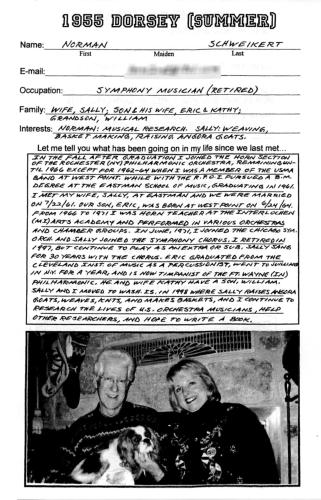 1955 DORSEY (SUMMER)
Name: NORMAN SCHWEIKERT
First Maiden Last
E-mail:
Occupation: SYMPHONY MUSICIAN (RETIRED)
Family: WIFE, SALLY; SON & HIS WIFE, ERIC & KATHY;
GRANDSON, WILLIAM
Interests: NORMAN: MUSICAL RESEARCH. SALLY: WEAVING,
BASKET MAKING, RAISING ANGORA GOATS.
Let me tell you what has been going on in my life since we last met...
IN THE FALL AFTER GRADUATION I JOINED THE HORN SECTION
OF THE ROCHESTER (NY) PHILHARMONIC ORCHESTRA, REMAINING UN-
TIL 1966 EXCEPT FOR 1962-64 WHEN I WAS A MEMBER OF THE USMA
BAND AT WEST POINT. WHILE WITH THE R.P.O. I PURSUED A B.M.
DEGREE AT THE EASTMAN SCHOOL OF MUSIC, GRADUATING IN 1961.
I MET MY WIFE, SALLY, AT EASTMAN AND WE WERE MARRIED
ON 7/23/61. OUR SON, ERIC, WAS BORN AT WEST POINT ON 6/24/64.
FROM 1966 TO 1971 I WAS HORN TEACHER AT THE INTERLOCHEN
(MI) ARTS ACADEMY AND PERFORMED IN VARIOUS ORCHESTRAS
AND CHAMBER GROUPS. IN JUNE, 1971, I JOINED THE CHICAGO SYM.
ORCH. AND SALLY JOINED THE SYMPHONY CHORUS. I RETIRED IN
1997, BUT CONTINUE TO PLAY AS AN EXTRA OR SUB. SALLY SANG
FOR 30 YEARS WITH THE CHORUS. ERIC GRADUATED FROM THE
CLEVELAND INST. OF MUSIC AS A PERCUSSIONIST, WENT TO
IN N.Y. FOR A YEAR, AND IS NOW TIMPANIST OF THE FT. WAYNE (IN)
PHILHARMONIC. HE AND WIFE KATHY HAVE A SON, WILLIAM.
SALLY AND I MOVED TO WASH. IS. IN 1998 WHERE SALLY RAISES ANGORA
GOATS, WEAVES, KNITS, AND MAKES BASKETS, AND I CONTINUE TO
RESEARCH THE LIVES OF U.S. ORCHESTRA MUSICIANS, HELP
OTHER RESEARCHERS, AND HOPE TO WRITE A BOOK.